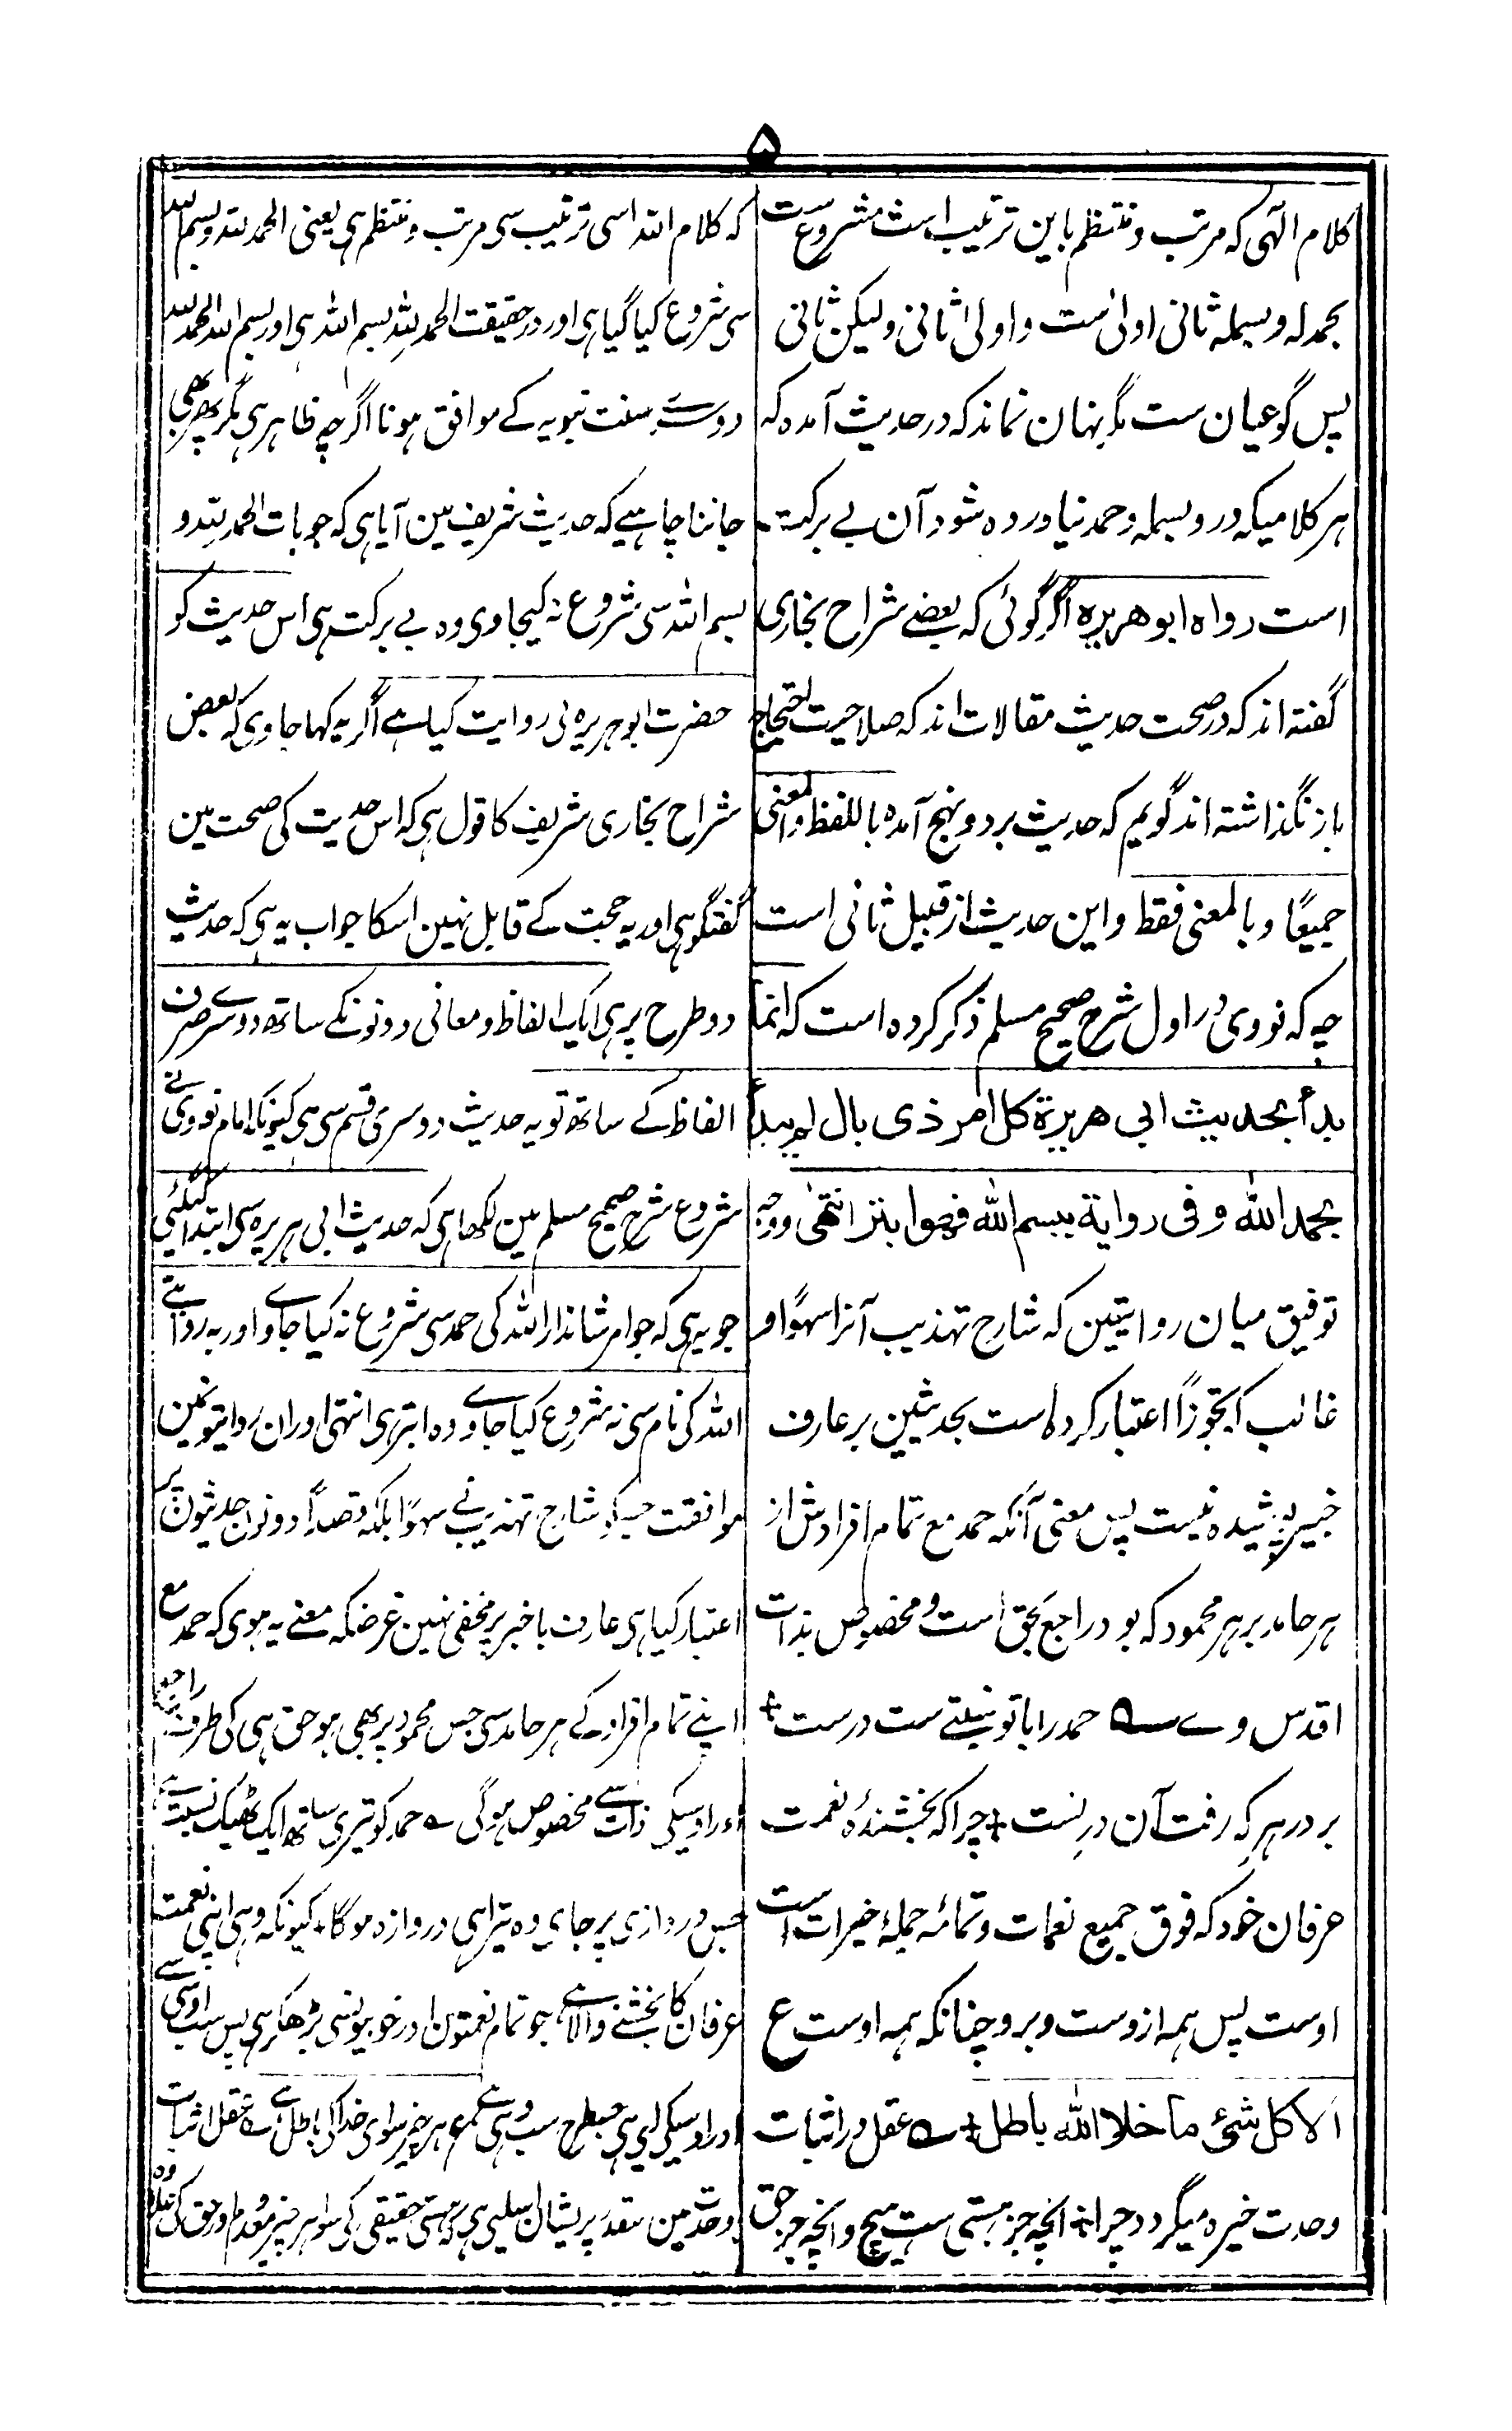 ۵
کلام الٓہی کہ مرتب و منتظم باین ترتیب است مشروع ست
بحمدلہ و بسملہ ثانی اولیٰ ست و اولی ثانی و لیکن ثانی
پس گو عیان ست مگر نہان نماند کہ در حدیث آمدہ کہ
ہر کلامیکہ در و بسملہ و حمد نیاوردہ شود آن بے برکت
است رواہ ابو ھریرہ اگر گوئی کہ بعضے شراح بخاری
گفتہ اند کہ در صحت حدیث مقالات اند کہ صلاحیت احتجاج
باز نگذاشتہ اند گویم کہ حدیث بر دو نہج آمدہ باللفظ والمعنی
جمیعًا و بالمعنی فقط و این حدیث از قبیل ثانی است
چہ کہ نووی در اول شرح صحیح مسلم ذکر کردہ است کہ انما
بدأ بحدیث ابی ھریرة کل امر ذی بال لم یبدأ
بحمد اللہ و فی روایة ببسم اللہ فھو ابتر انتھی و وجہ
توفیق میان روایتین کہ شارح تہذیب آنرا سہوًا و
غالب کہ تجوزًا اعتبار کردہ است بحدیثین بر عارف
خبیر پوشیدہ نیست پس معنی آنکہ حمد مع تمام افرادش از
ہر حامد بر ہر محمود کہ بود راجع بحق است و مخصوص بذات
اقدس وے ؎ حمد را با تو نسبتے ست درست +
بر در ہر کہ رفت آن در تست + چرا کہ بخشندۂ نعمت
عرفان خود کہ فوق جمیع نعمات و تمامہ جملۂ خیرات است
اوست پس ہمہ ازوست و برو چنانکہ ہمہ اوست ع
اَلا کل شئ ما خلا اللہ باطل + ؎ عقل در اثبات
وحدت خیرہ میگردد چرا + انچہ جز ہستی ست ہیچ و انچہ جز حق
کہ کلام اللہ اسی ترتیب سی مرتب و منتظم ہی یعنی الحمد للہ و بسم اللہ
سی شروع کیا گیا ہی اور درحقیقت الحمد للہ بسم اللہ ہی اور بسم اللہ الحمد للہ
دوسرے سنت نبویہ کے موافق ہونا اگرچہ ظاہر ہی مگر پھر بھی
جاننا چاہیے کہ حدیث شریف مین آیا ہی کہ جو بات الحمد للہ و
بسم اللہ سی شروع نہ کیجاوی وہ بے برکت ہی اس حدیث کو
حضرت ابو ہریرہ نی روایت کیا ہے اگر یہ کہا جاوی کہ بعض
شراح بخاری شریف کا قول ہی کہ اس حدیث کی صحت مین
گفتگو ہی اور یہ حجت کے قابل نہین اسکا جواب یہ ہی کہ حدیث
دو طرح پر ہی ایک الفاظ و معانی دونونکے ساتھ دوسرے صرف
الفاظ کے ساتھ تو یہ حدیث دوسری قسم سی ہی کیونکہ امام نووی نے
شروع شرح صحیح مسلم مین لکھا ہی کہ حدیث ابی ہریرہ سی ابتدا کیگئی
جو یہ ہی کہ جو امر شاندار اللہ کی حمد سی شروع نہ کیا جاوے اور بہ روایتے
اللہ کی نام سی نہ شروع کیا جاوے وہ ابتر ہی انتہی اور ان روایتونمین
موافقت جسکو شارح تہذیب نے سہوًا بلکہ قصدًا دونون حدیثون پر
اعتبار کیا ہی عارف باخبر پر مخفی نہین غرضکہ معنے یہ ہوی کہ حمد مع
اپنے تمام افراد کے ہر حامد سی جس محمود پر بھی ہو حق ہی کی طرف راجع
اور اوسیکی ذات سے مخصوص ہوگی ؎ حمد کو تیری ساتھ ایک ٹھیک نسبت ہے
جس دروازی پر جای وہ تیرا ہی دروازہ ہوگا + کیونکہ وہی اپنی نعمت
عرفان کا بخشنے والا ہے جو تمام نعمتون اور خوبیونسی بڑھکر ہی پس سب اوسی سے
اور اوسیکی لیی ہی جسطرح سب وہی ہے ع ہر چیز سوای خدا کی باطل ہے ؎ عقل اثبات
وحدت مین پریشان ہی کہ ہستی حقیقی کی سوا ہر چیز معدوم اور حق کی علاوہ